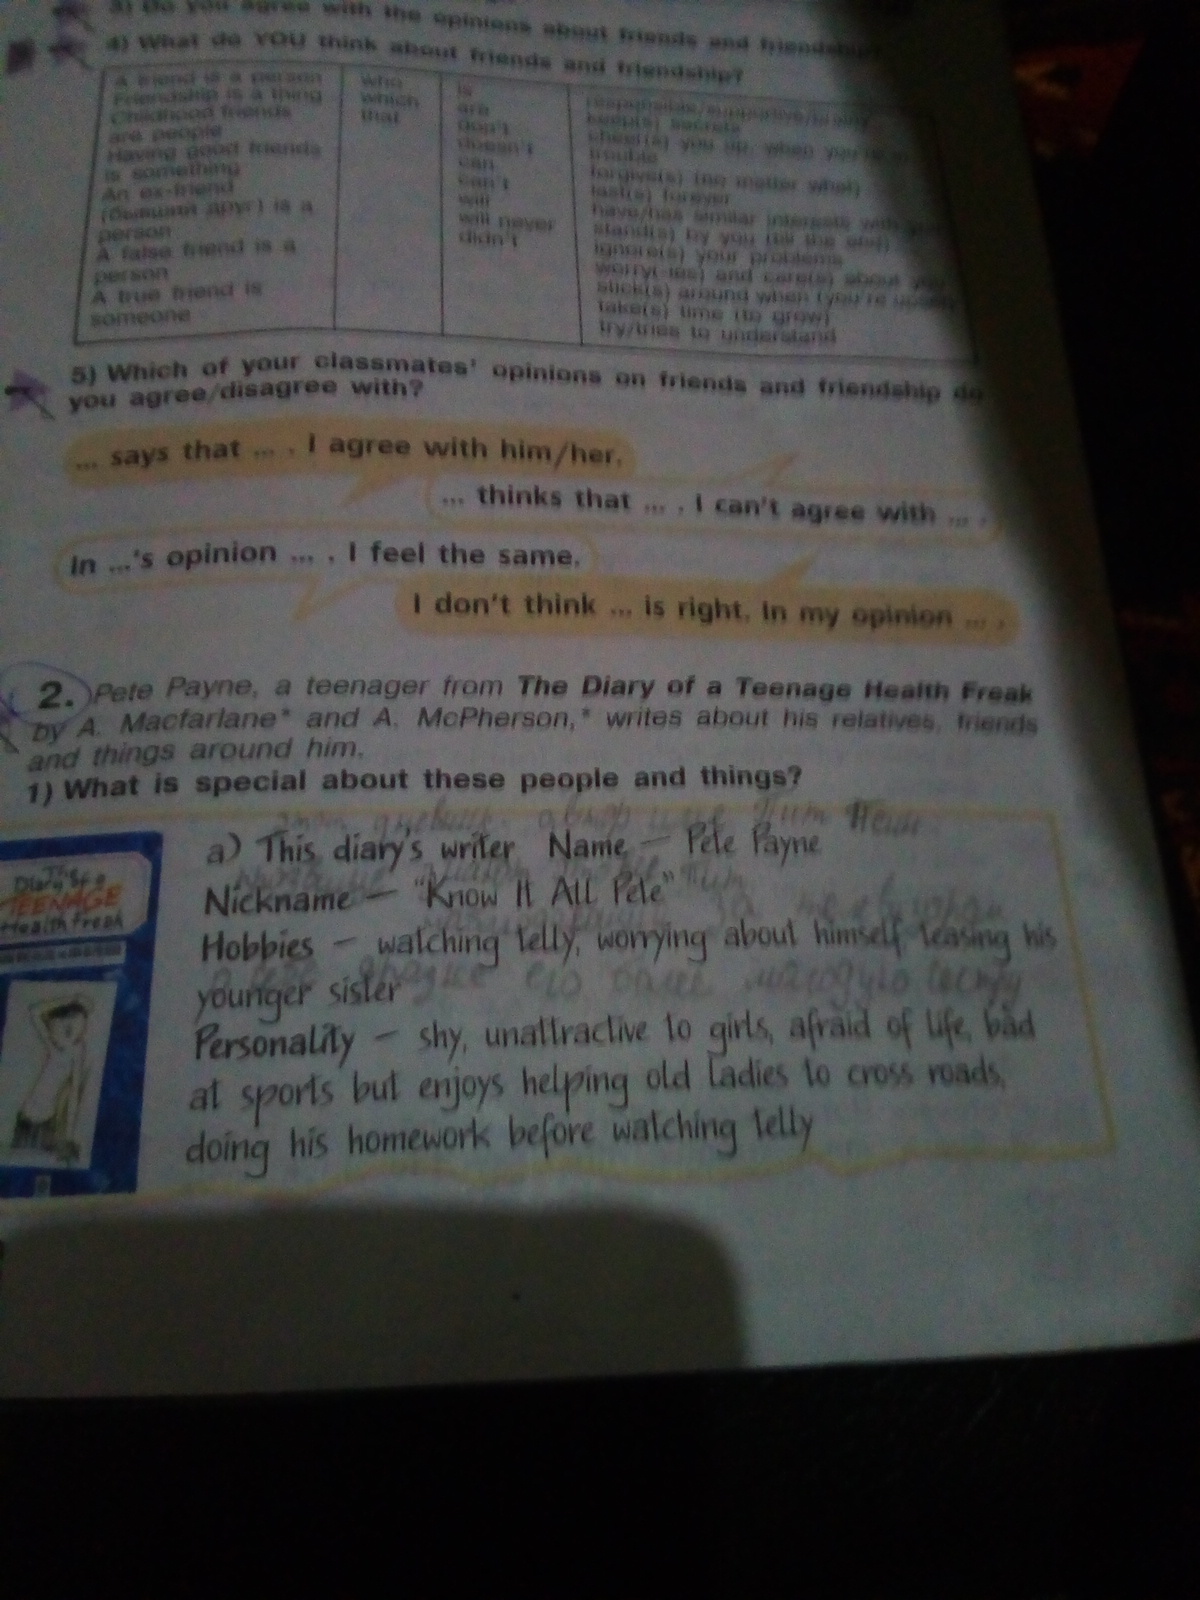 3) Do you agree with the opinions about friends and friendship?
4) What do YOU think about friends and friendship?
A friend is a person
Friendship is a thing
Childhood friends
are people
Having good friends
is something
An ex-friend
(бывший друг) is a
person
A false friend is a
person
A true friend is
someone
who
which
that
is
are
don't
doesn't
can
can't
will
will never
didn't
responsible/supportive/
keep(s) secrets
cheer(s) you up, when you're in
trouble
forgive(s) (no matter what)
last(s) forever
have/has similar interests with
stand(s) by you (till the end)
ignore(s) your problems
worry(-ies) and care(s) about you
stick(s) around when (you're upset)
take(s) time (to grow)
try/tries to understand
5) Which of your classmates' opinions on friends and friendship do
you agree/disagree with?
... says that ... . I agree with him/her.
... thinks that ... . I can't agree with ... .
In ...'s opinion ... . I feel the same.
I don't think ... is right. In my opinion ... .
2. Pete Payne, a teenager from The Diary of a Teenage Health Freak
by A. Macfarlane* and A. McPherson,* writes about his relatives, friends
and things around him.
1) What is special about these people and things?
The
Diary of a
TEENAGE
Health Freak
a) This diary's writer Name – Pete Payne
Nickname – "Know It All Pete"
Hobbies – watching telly, worrying about himself, teasing his
его более молодую сестру
younger sister
Personality – shy, unattractive to girls, afraid of life, bad
at sports but enjoys helping old ladies to cross roads,
doing his homework before watching telly